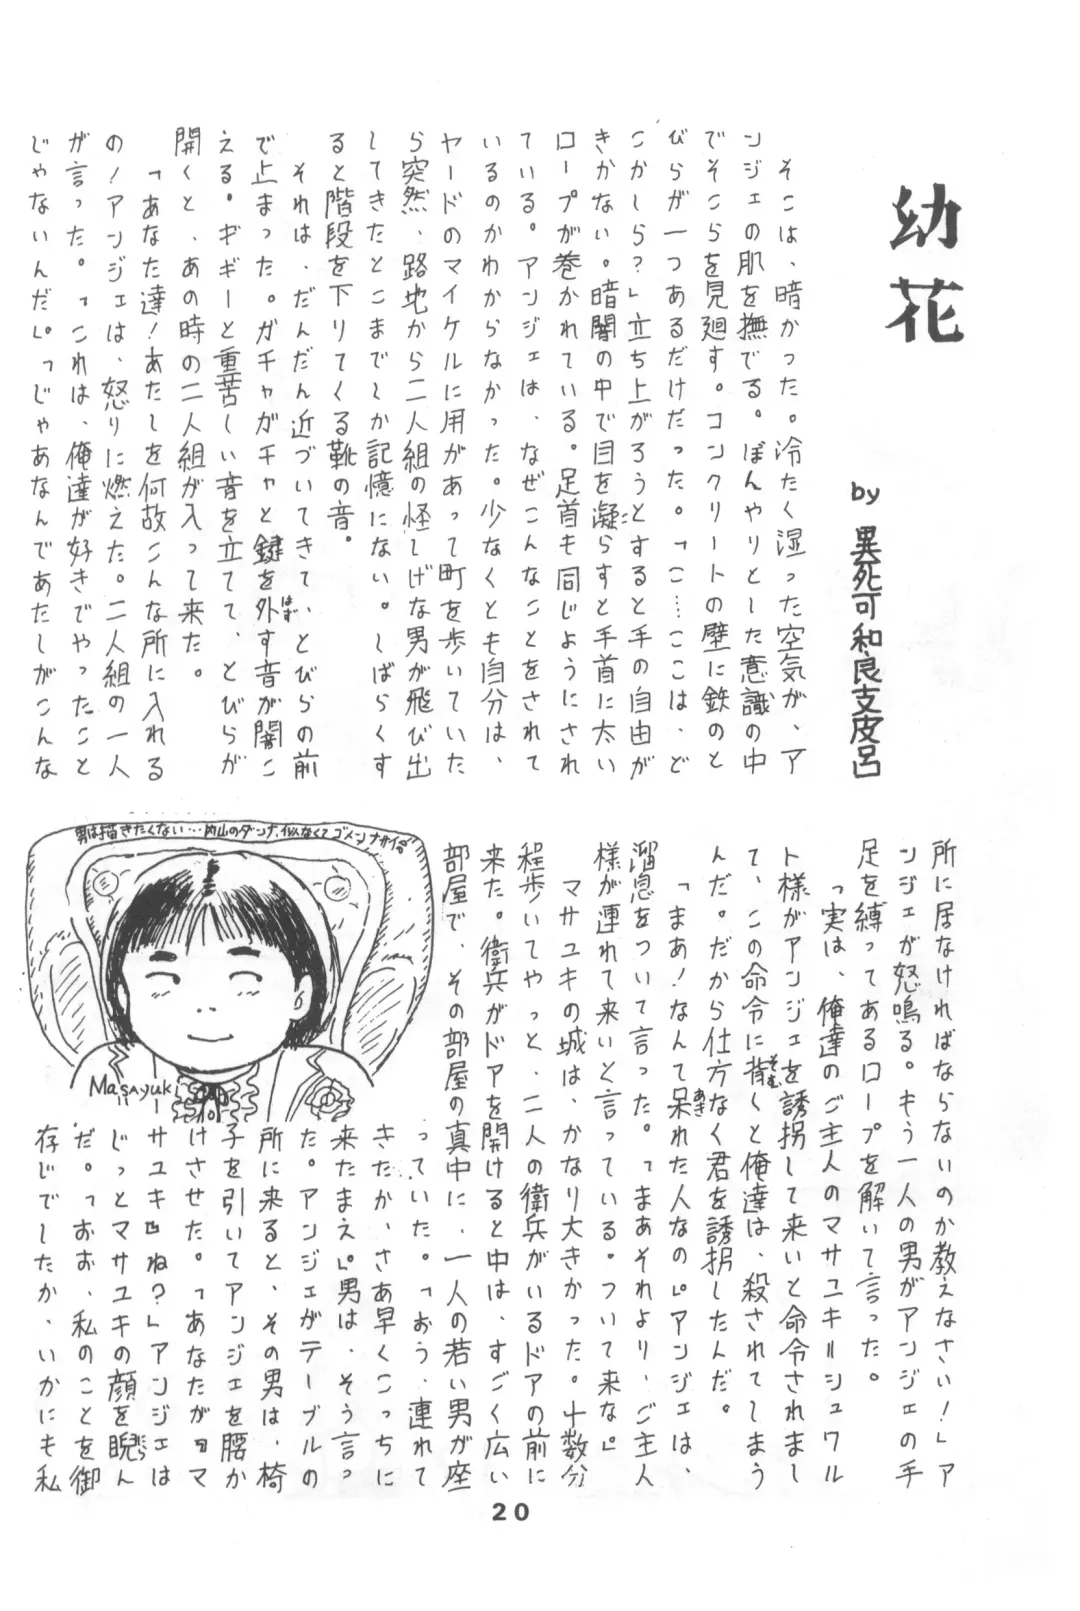 幼花
by 異死可和良支皮呂
そこは、暗かった。冷たく湿った空気が、ア
ンジェの肌を撫でる。ぼんやりとした意識の中
でそこらを見廻す。コンクリートの壁に鉄のと
びらが一つあるだけだった。「こ…ここは、ど
こかしら?」立ち上がろうとすると手の自由が
きかない。暗闇の中で目を凝らすと手首に太い
ロープが巻かれている。足首も同じようにされ
ている。アンジェは、なぜこんなことをされて
いるのかわからなかった。少なくとも自分は、
ヤードのマイケルに用があって町を歩いていた
ら突然、路地から二人組の怪しげな男が飛び出
してきたとこまでしか記憶にない。しばらくす
ると階段を下りてくる靴の音。
それは、だんだん近づいてきて、とびらの前
で止まった。ガチャガチャと鍵を外す音が闇こ
える。ギギーと重苦しい音を立てて、とびらが
開くと、あの時の二人組が入って来た。
「あなた達!あたしを何故こんな所に入れる
の!アンジェは、怒りに燃えた。二人組の一人
が言った。「これは、俺達が好きでやったこと
じゃないんだ。」「じゃあなんであたしがこんな
所に居なければならないのか教えなさい!」ア
ンジェが怒鳴る。もう一人の男がアンジェの手
足を縛ってあるロープを解いて言った。
「実は、俺達のご主人のマサユキ=シュワル
ト様がアンジェを誘拐して来いと命令されまし
て、この命令に背くと俺達は、殺されてしまう
んだ。だから仕方なく君を誘拐したんだ。
「まあ!なんて呆れた人なの。」アンジェは、
溜息をついて言った。「まあそれより、ご主人
様が連れて来いと言っている。ついて来な。」
マサユキの城は、かなり大きかった。十数分
程歩いてやっと、二人の衛兵がいるドアの前に
来た。衛兵がドアを開けると中は、すごく広い
部屋で、その部屋の真中に、一人の若い男が座
っていた。「おう、連れて
きたか、さあ早くこっちに
来たまえ。」男は、そう言っ
た。アンジェがテーブルの
所に来ると、その男は、椅
子を引いてアンジェを腰か
けさせた。「あなたが『マ
サユキ』ね?」アンジェは
じっとマサユキの顔を睨ん
だ。「おお、私のことを御
存じでしたか、いかにも私
男は描きたくない…内山のダンナ、似なくてゴメンナサイ
Masayuki
20